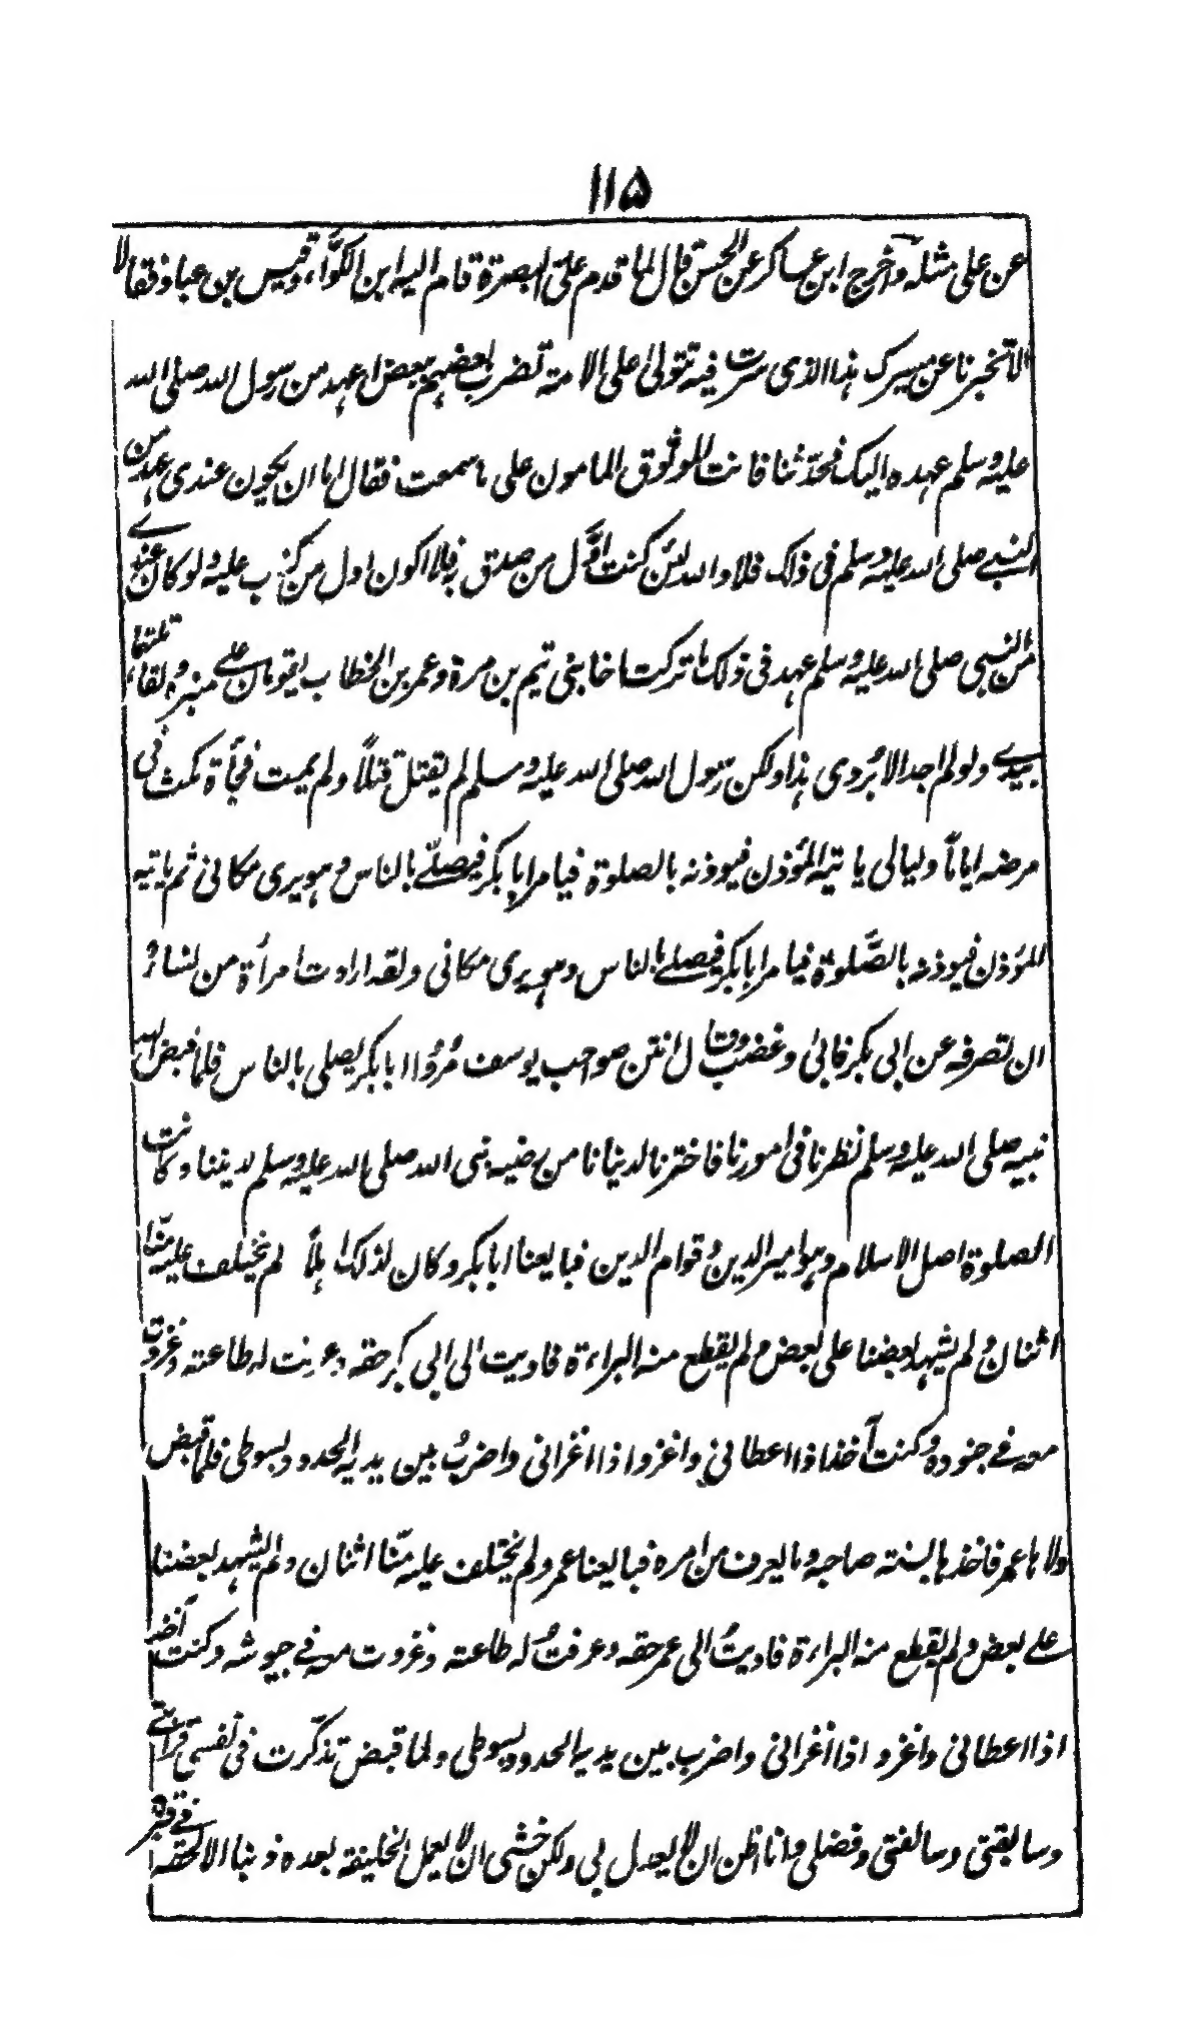 ١١٥
عن علی مثله واخرج ابن عساکر عن الحسن قال لما قدم علیّ البصرة قام الیه ابن الکوّاء وقیس بن عباد فقالا
الا تخبرنا عن مسیرک هذا الذی سرت فیه تتولی علی الامة تضرب بعضهم ببعض اعهد من رسول الله صلی الله
علیه وسلم عهده الیک فحدّثنا فانت الموثوق المامون علی ما سمعت فقال اما ان یکون عندی عهد من
النبی صلی الله علیه وسلم فی ذلک فلا والله لئن کنت اوّل من صدق به فلا اکون اول من کذب علیه ولو کان عندی
من النبی صلی الله علیه وسلم عهد فی ذلک ما ترکت اخا بنی تیم بن مرة وعمر بن الخطاب یقومان علی منبره ولقاتلتهما
بیدی ولو لم اجد الا بُردی هذا ولکن رسول الله صلی الله علیه وسلم لم یقتل قتلاً ولم یمت فجأة مکث فی
مرضه ایاماً ولیالی یاتیه المؤذن فیوذنه بالصلوة فیامر ابا بکر فیصلّی بالناس وهو یری مکانی ثم یاتیه
المؤذن فیوذنه بالصَّلوة فیامر ابا بکر فیصلی بالناس وهو یری مکانی ولقد ارادت امرأة من نسائه
ان تصرفه عن ابی بکر فابی وغضب وقال انتن صواحب یوسف مُرُوا ابا بکر یصلی بالناس فلما قبض الله
نبیه صلی الله علیه وسلم نظرنا فی امورنا فاخترنا لدنیانا من رضیه نبی الله صلی الله علیه وسلم لدیننا وکانت
الصلوة اصل الاسلام وهو امیر الدین وقوام الدین فبایعنا ابا بکر وکان لذلک اهلاً لم یختلف علیه منّا
اثنان ولم یشهد بعضنا علی بعض ولم یقطع منه البراءة فادیت الی ابی بکر حقه وعرفت له طاعته وغزوت
معه فی جنوده وکنت آخذ اذا اعطانی واغزو اذا اغزانی واضربُ بین یدیه الحدود بسوطی فلما قبض
ولاها عمر فاخذها بسنته صاحبه وما یعرف من امره فبایعنا عمر ولم یختلف علیه منّا اثنان ولم یشهد بعضنا
علی بعض ولم یقطع منه البراءة فادیتُ الی عمر حقه وعرفتُ له طاعته وغزوت معه فی جیوشه وکنت آخذ
اذا اعطانی واغزو اذا اغزانی واضرب بین یدیه الحدود بسوطی ولما قبض تذکّرت فی نفسی قرابتی
وسابقتی وسالفتی وفضلی وانا اظن ان لا یعدل بی ولکن خشی ان لا یعمل الخلیفة بعده ذنبا الا لحقه فی قبره